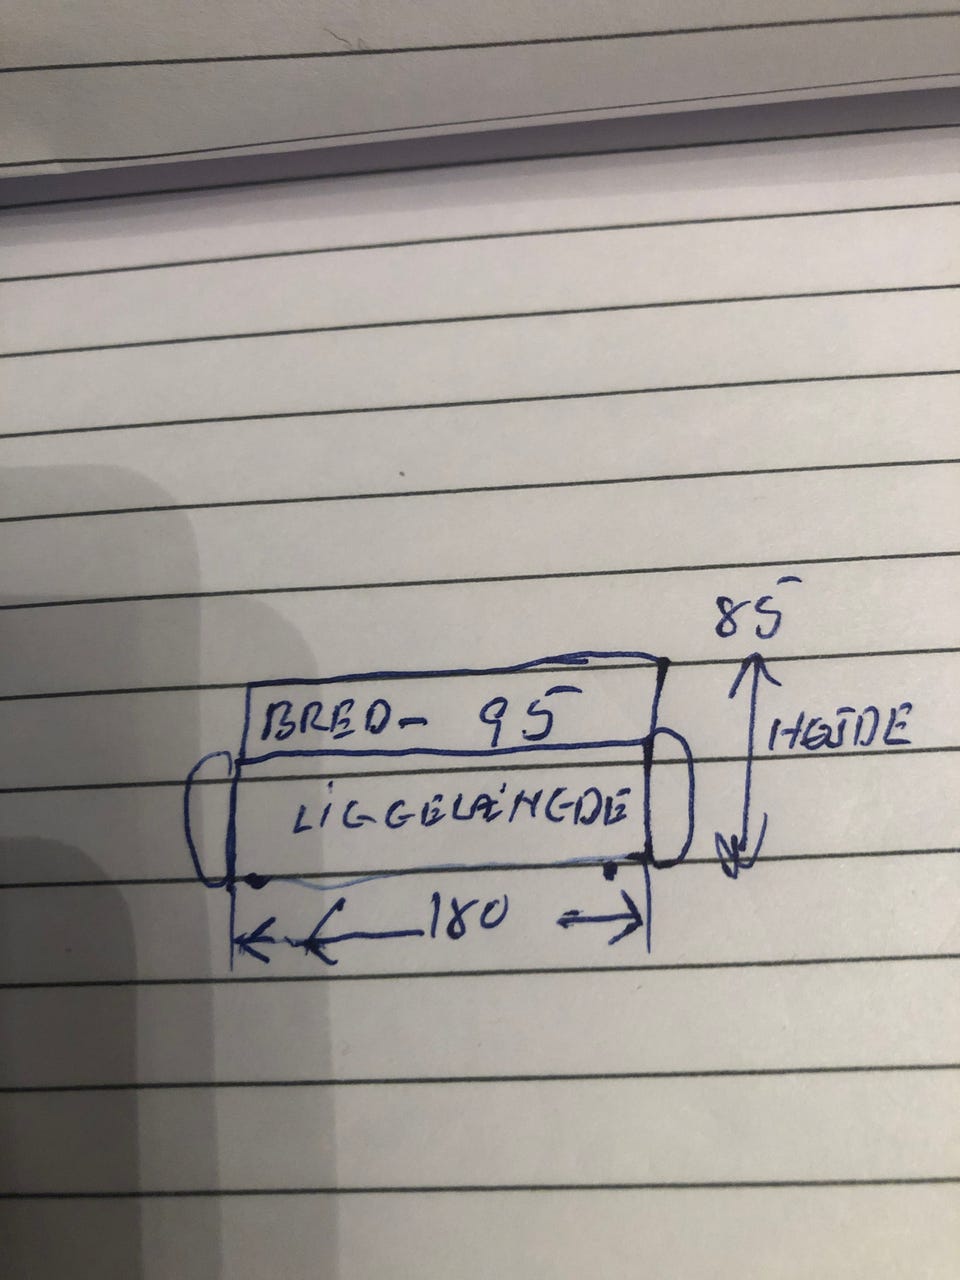 85
BRED- 95
HØJDE
LIGGELÆNGDE
180